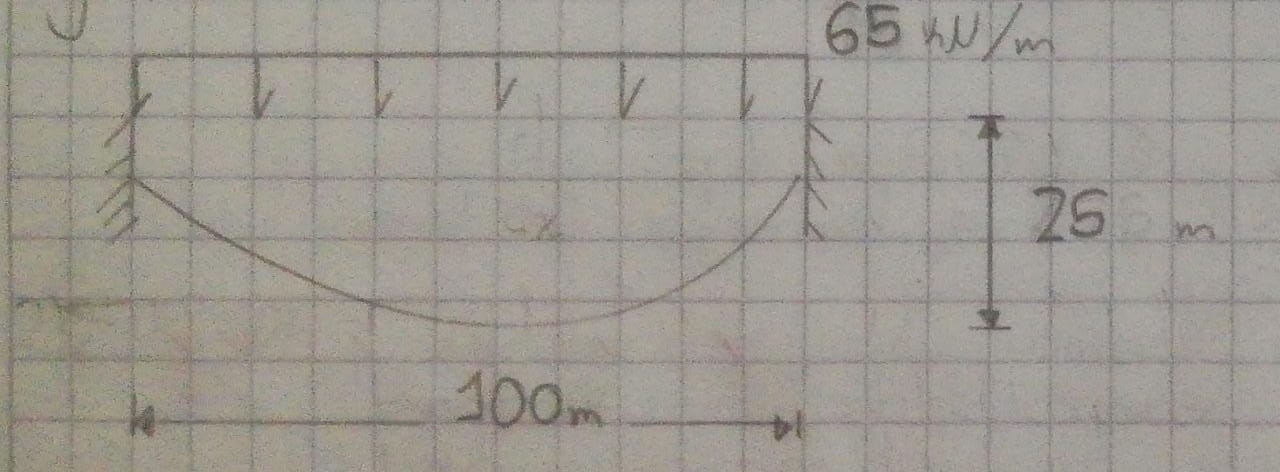 65 kN/m
25 m
100m